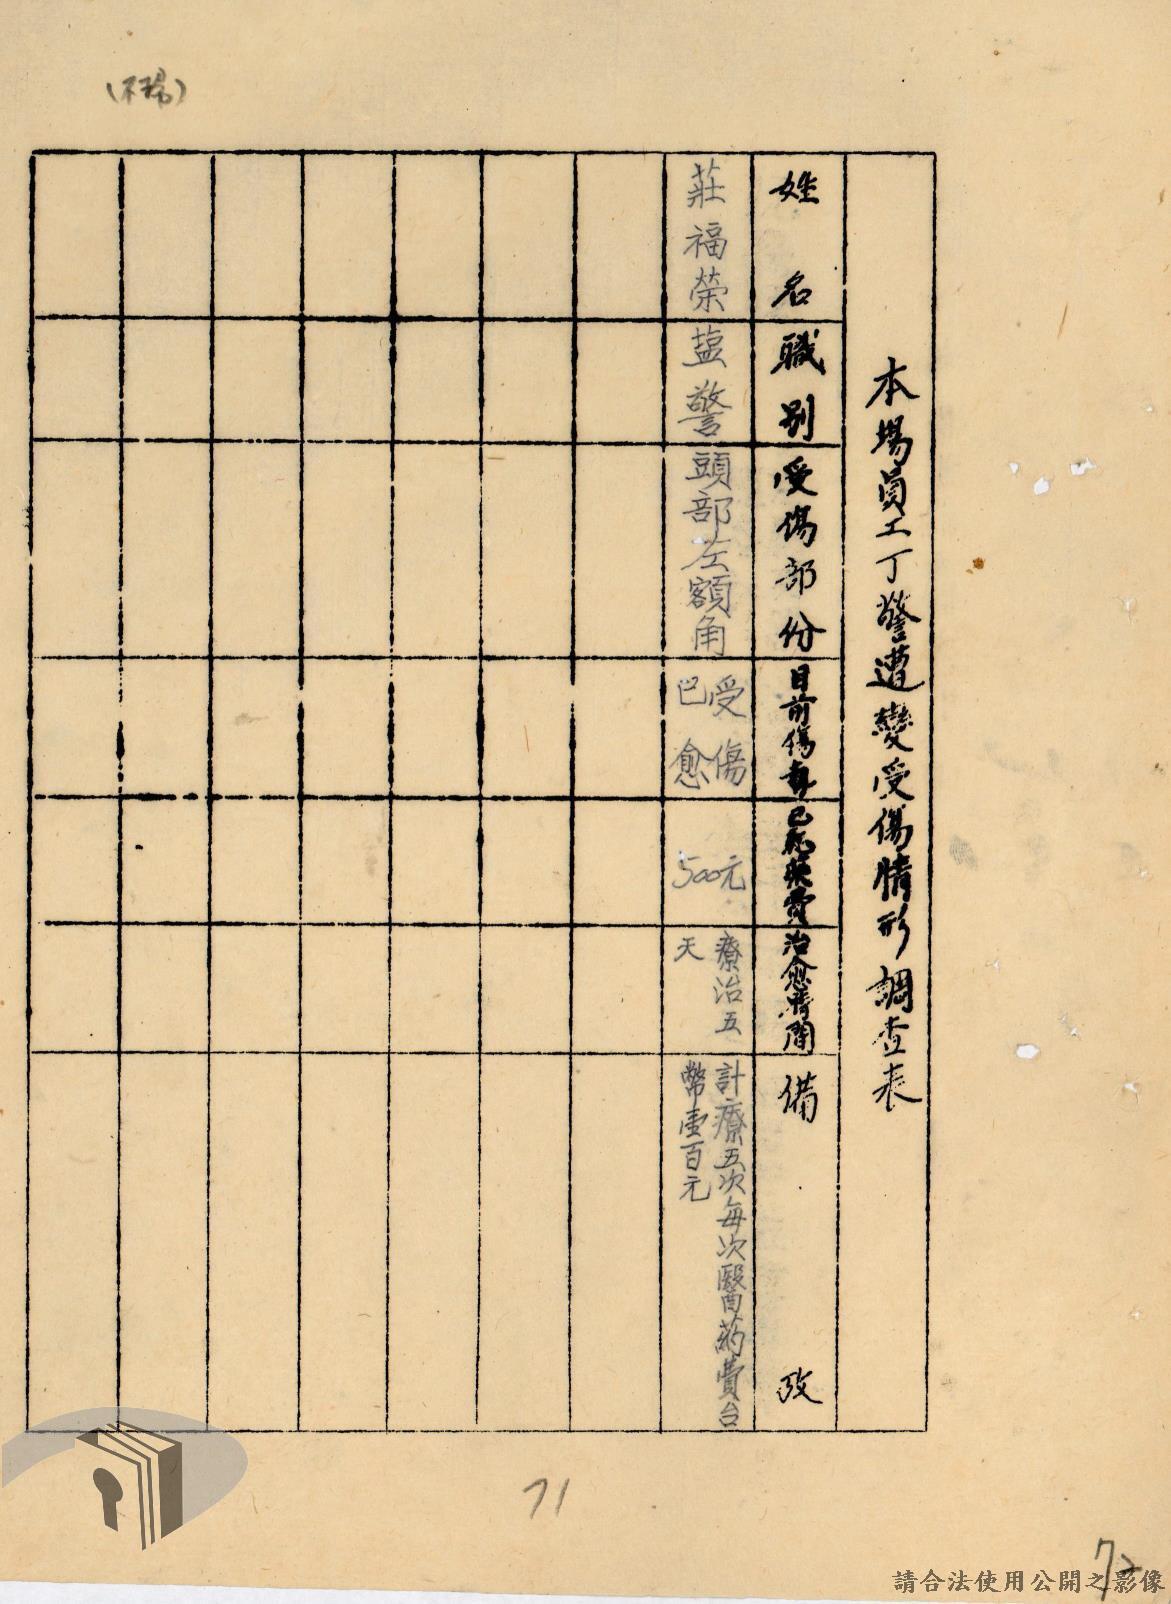 本場員工丁警遭變受傷情形調查表
姓名
職別
受傷部份
目前傷勢
已醫藥費
治愈時間
備攷
莊福榮
塩警
頭部左額角
受傷
已愈
500元
療治五
天
計療五次每次醫葯費台
幣壹百元
71
72
請合法使用公開之影像